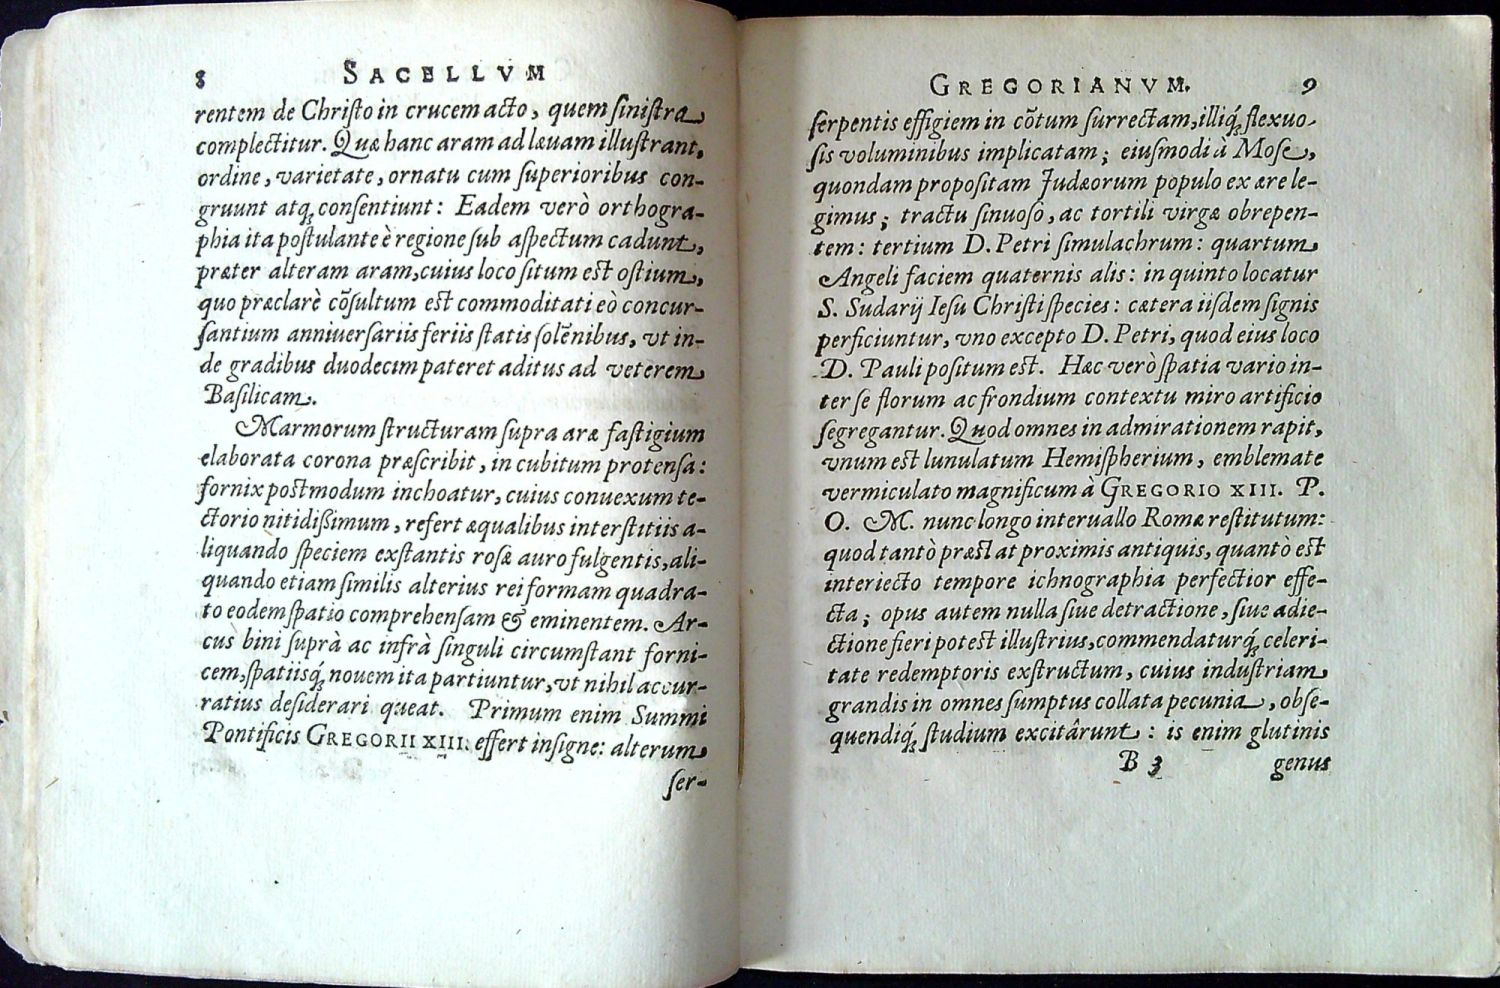 8 SACELLVM
rentem de Christo in crucem acto, quem sinistra
complectitur. Quæ hanc aram ad læuam illustrant,
ordine, varietate, ornatu cum superioribus con-
gruunt atq; consentiunt: Eadem verò orthogra-
phia ita postulante è regione sub aspectum cadunt,
præter alteram aram, cuius loco situm est ostium,
quo præclarè cōsultum est commoditati eò concur-
santium anniuersariis feriis statis solēnibus, vt in-
de gradibus duodecim pateret aditus ad veterem
Basilicam.
Marmorum structuram supra aræ fastigium
elaborata corona præscribit, in cubitum protensa:
fornix postmodum inchoatur, cuius conuexum te-
ctorio nitidißimum, refert æqualibus interstitiis a-
liquando speciem exstantis rosæ auro fulgentis, ali-
quando etiam similis alterius rei formam quadra-
to eodem spatio comprehensam & eminentem. Ar-
cus bini suprà ac infrà singuli circumstant forni-
cem, spatiisq; nouem ita partiuntur, vt nihil accur-
ratius desiderari queat. Primum enim Summi
Pontificis GREGORII XIII. effert insigne: alterum
ser-
GREGORIANVM. 9
serpentis effigiem in cōtum surrectam, illiq; flexuo-
sis voluminibus implicatam; eiusmodi à Mose,
quondam propositam Judæorum populo ex ære le-
gimus; tractu sinuoso, ac tortili virgæ obrepen-
tem: tertium D. Petri simulachrum: quartum
Angeli faciem quaternis alis: in quinto locatur
S. Sudarij Iesu Christi species: cætera iisdem signis
perficiuntur, vno excepto D. Petri, quod eius loco
D. Pauli positum est. Hæc verò spatia vario in-
ter se florum ac frondium contextu miro artificio
segregantur. Quod omnes in admirationem rapit,
vnum est lunulatum Hemispherium, emblemate
vermiculato magnificum à GREGORIO XIII. P.
O. M. nunc longo interuallo Romæ restitutum:
quod tantò præstat proximis antiquis, quantò est
interiecto tempore ichnographia perfectior effe-
cta; opus autem nulla siue detractione, siue adie-
ctione fieri potest illustrius, commendaturq; celeri-
tate redemptoris exstructum, cuius industriam
grandis in omnes sumptus collata pecunia, obse-
quendiq; studium excitârunt: is enim glutinis
B 3 genus